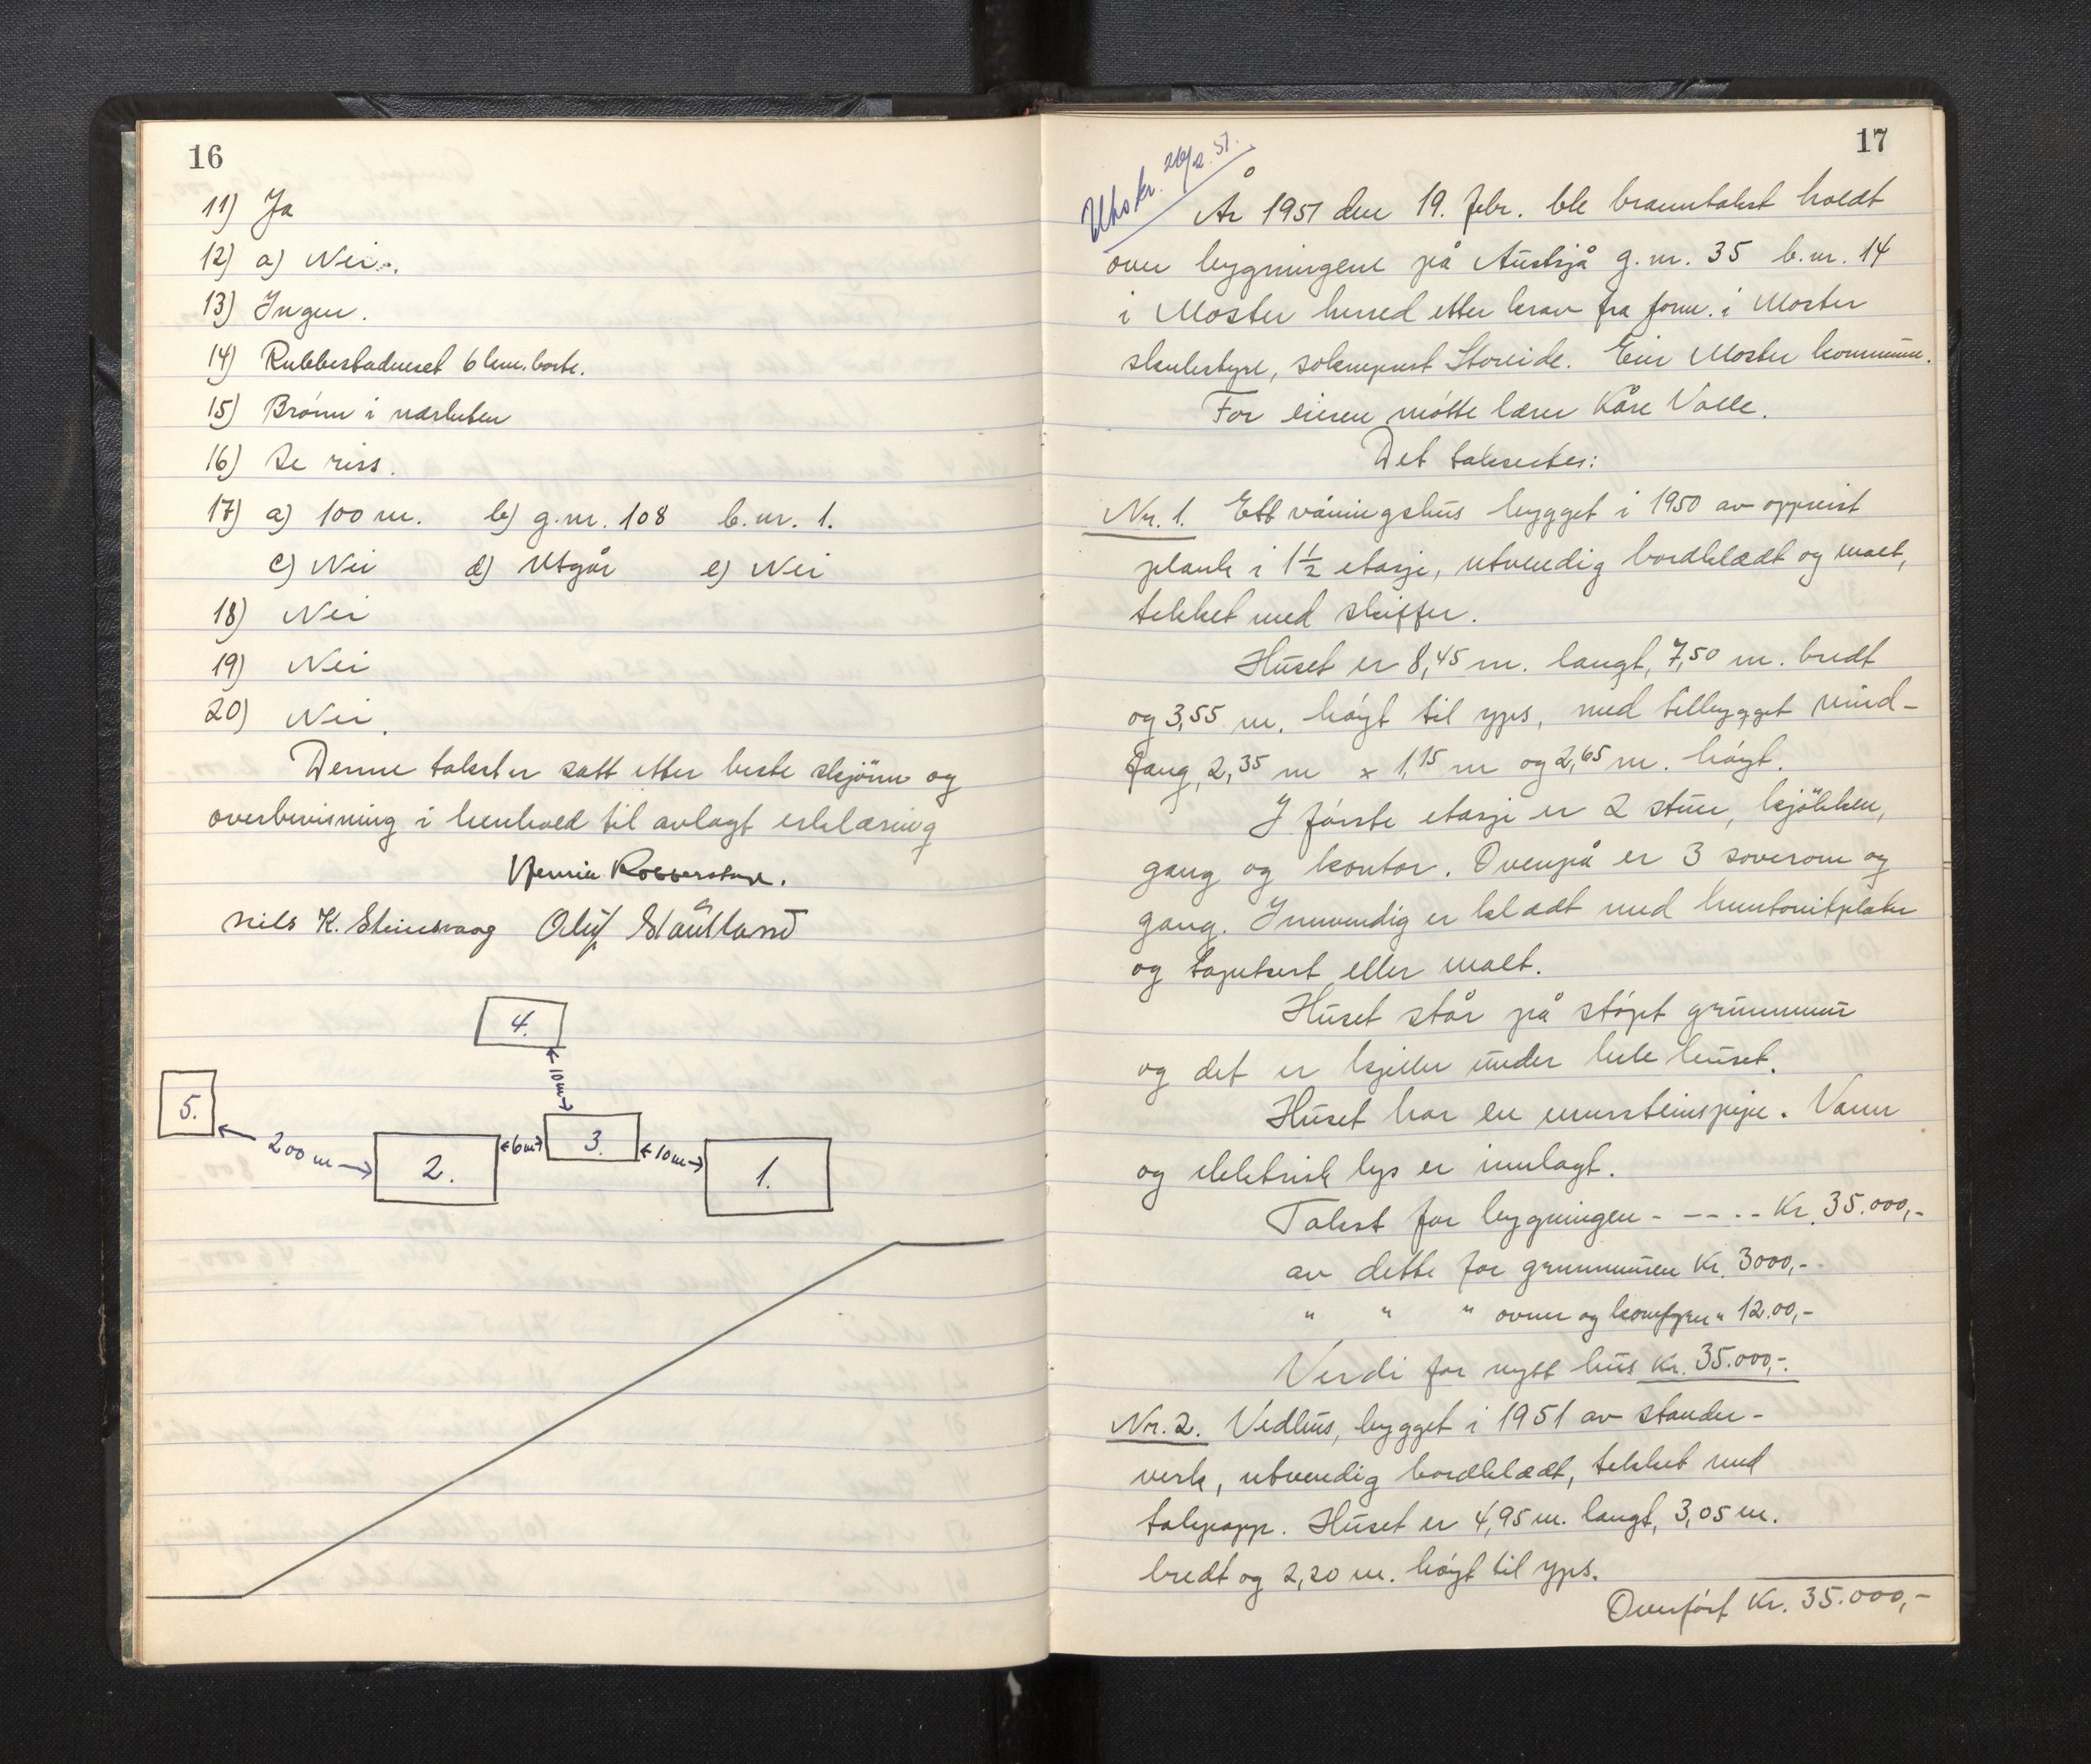 16
11) Ja
12) a) Nei.
13) Ingen.
14) Rubbestadneset 6 km. borte.
15) Brønn i nærheten
16) Se riss.
17) a) 100 m. b) g.nr. 108 b.nr. 1.
c) Nei d) Utgår e) Nei
18) Nei
19) Nei
20) Nei.
Denne takst er satt etter beste skjönn og
overbevisning i henhold til avlagt erklæring
Henrik Robberstad.
Nils K. Steinsvaag Oluf Slåttland
4.
10m
5.
200 m
2.
6m
3.
10m
1.
17
Utskr. 26/2. 51.
År 1951 den 19. febr. ble branntakst holdt
over bygningene på Austsjå g.nr. 35 b.nr. 14
i Moster herred etter krav fra form. i Moster
skulestyre, sokneprest Storeide. Eier Moster kommune.
For eieren møtte lærer Kåre Valle.
Det takseres:
Nr. 1. Ett våningshus bygget i 1950 av oppreist
plank i 1½ etasje, utvendig bordkledt og malt,
tekket med skiffer.
Huset er 8,45 m. langt, 7,50 m. bredt
og 3,55 m. høgt til yps, med tilbygget vind-
fang, 2,35 m x 1,15 m og 2,65 m. høgt.
I første etasje er 2 stuer, kjökken,
gang og kontor. Ovenpå er 3 soverom og
gang. Innvendig er kledt med huntonitplater
og tapetsert eller malt.
Huset står på støpt grunnmur
og det er kjeller under hele huset.
Huset har en mursteinspipe. Vann
og elektrisk lys er innlagt.
Takst for bygningen - - - - - Kr. 35.000,-
av dette for grunnmuren Kr. 3000,-
" " " ovner og komfyren " 12.00,-
Verdi for nytt hus Kr. 35.000,-.
Nr. 2. Vedhus, bygget i 1951 av stender-
verk, utvendig bordkledt, tekket med
takpapp. Huset er 4,95 m. langt, 3,05 m.
bredt og 2,20 m. høgt til yps.
Overført Kr. 35.000,-